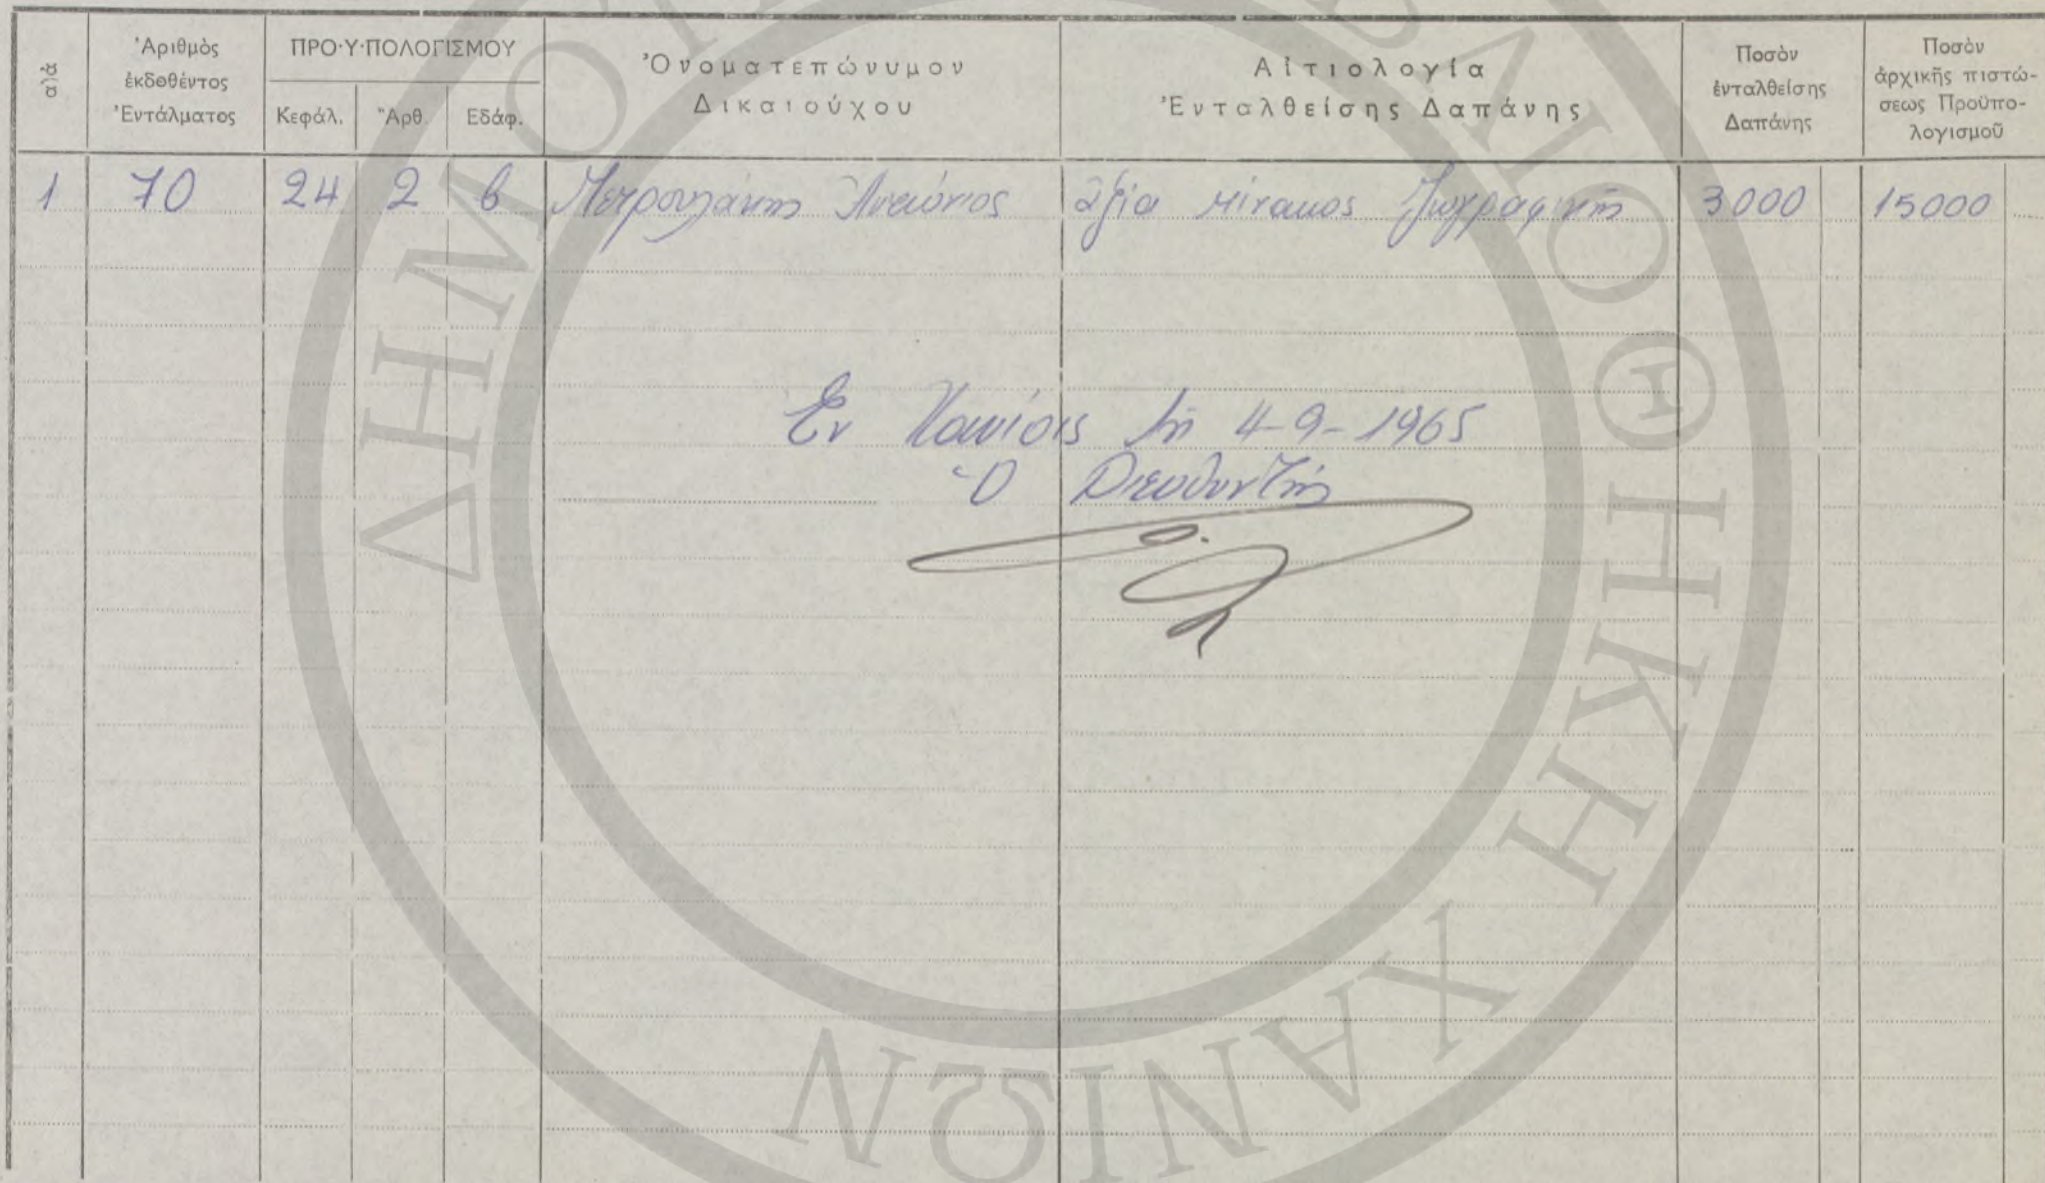 α)α
Ἀριθμὸς ἐκδοθέντος Ἐντάλματος
ΠΡΟ·Υ·ΠΟΛΟΓΙΣΜΟΥ
Κεφάλ. Ἄρθ. Εδάφ.
Ὀνοματεπώνυμον
Δικαιούχου
Αἰτιολογία
Ἐνταλθείσης Δαπάνης
Ποσὸν
ἐνταλθείσης
Δαπάνης
Ποσὸν
ἀρχικῆς πιστώ-
σεως Προϋπο-
λογισμοῦ
1 70 24 2 β Ἀντώνιος ἀξία πίνακος ζωγραφικῆς 3000 15000
Ἐν Χανίοις τῇ 4-9-1965
Ὁ Διευθυντής
ΔΗΜΟΤΙΚΗ ΒΙΒΛΙΟΘΗΚΗ ΧΑΝΙΩΝ